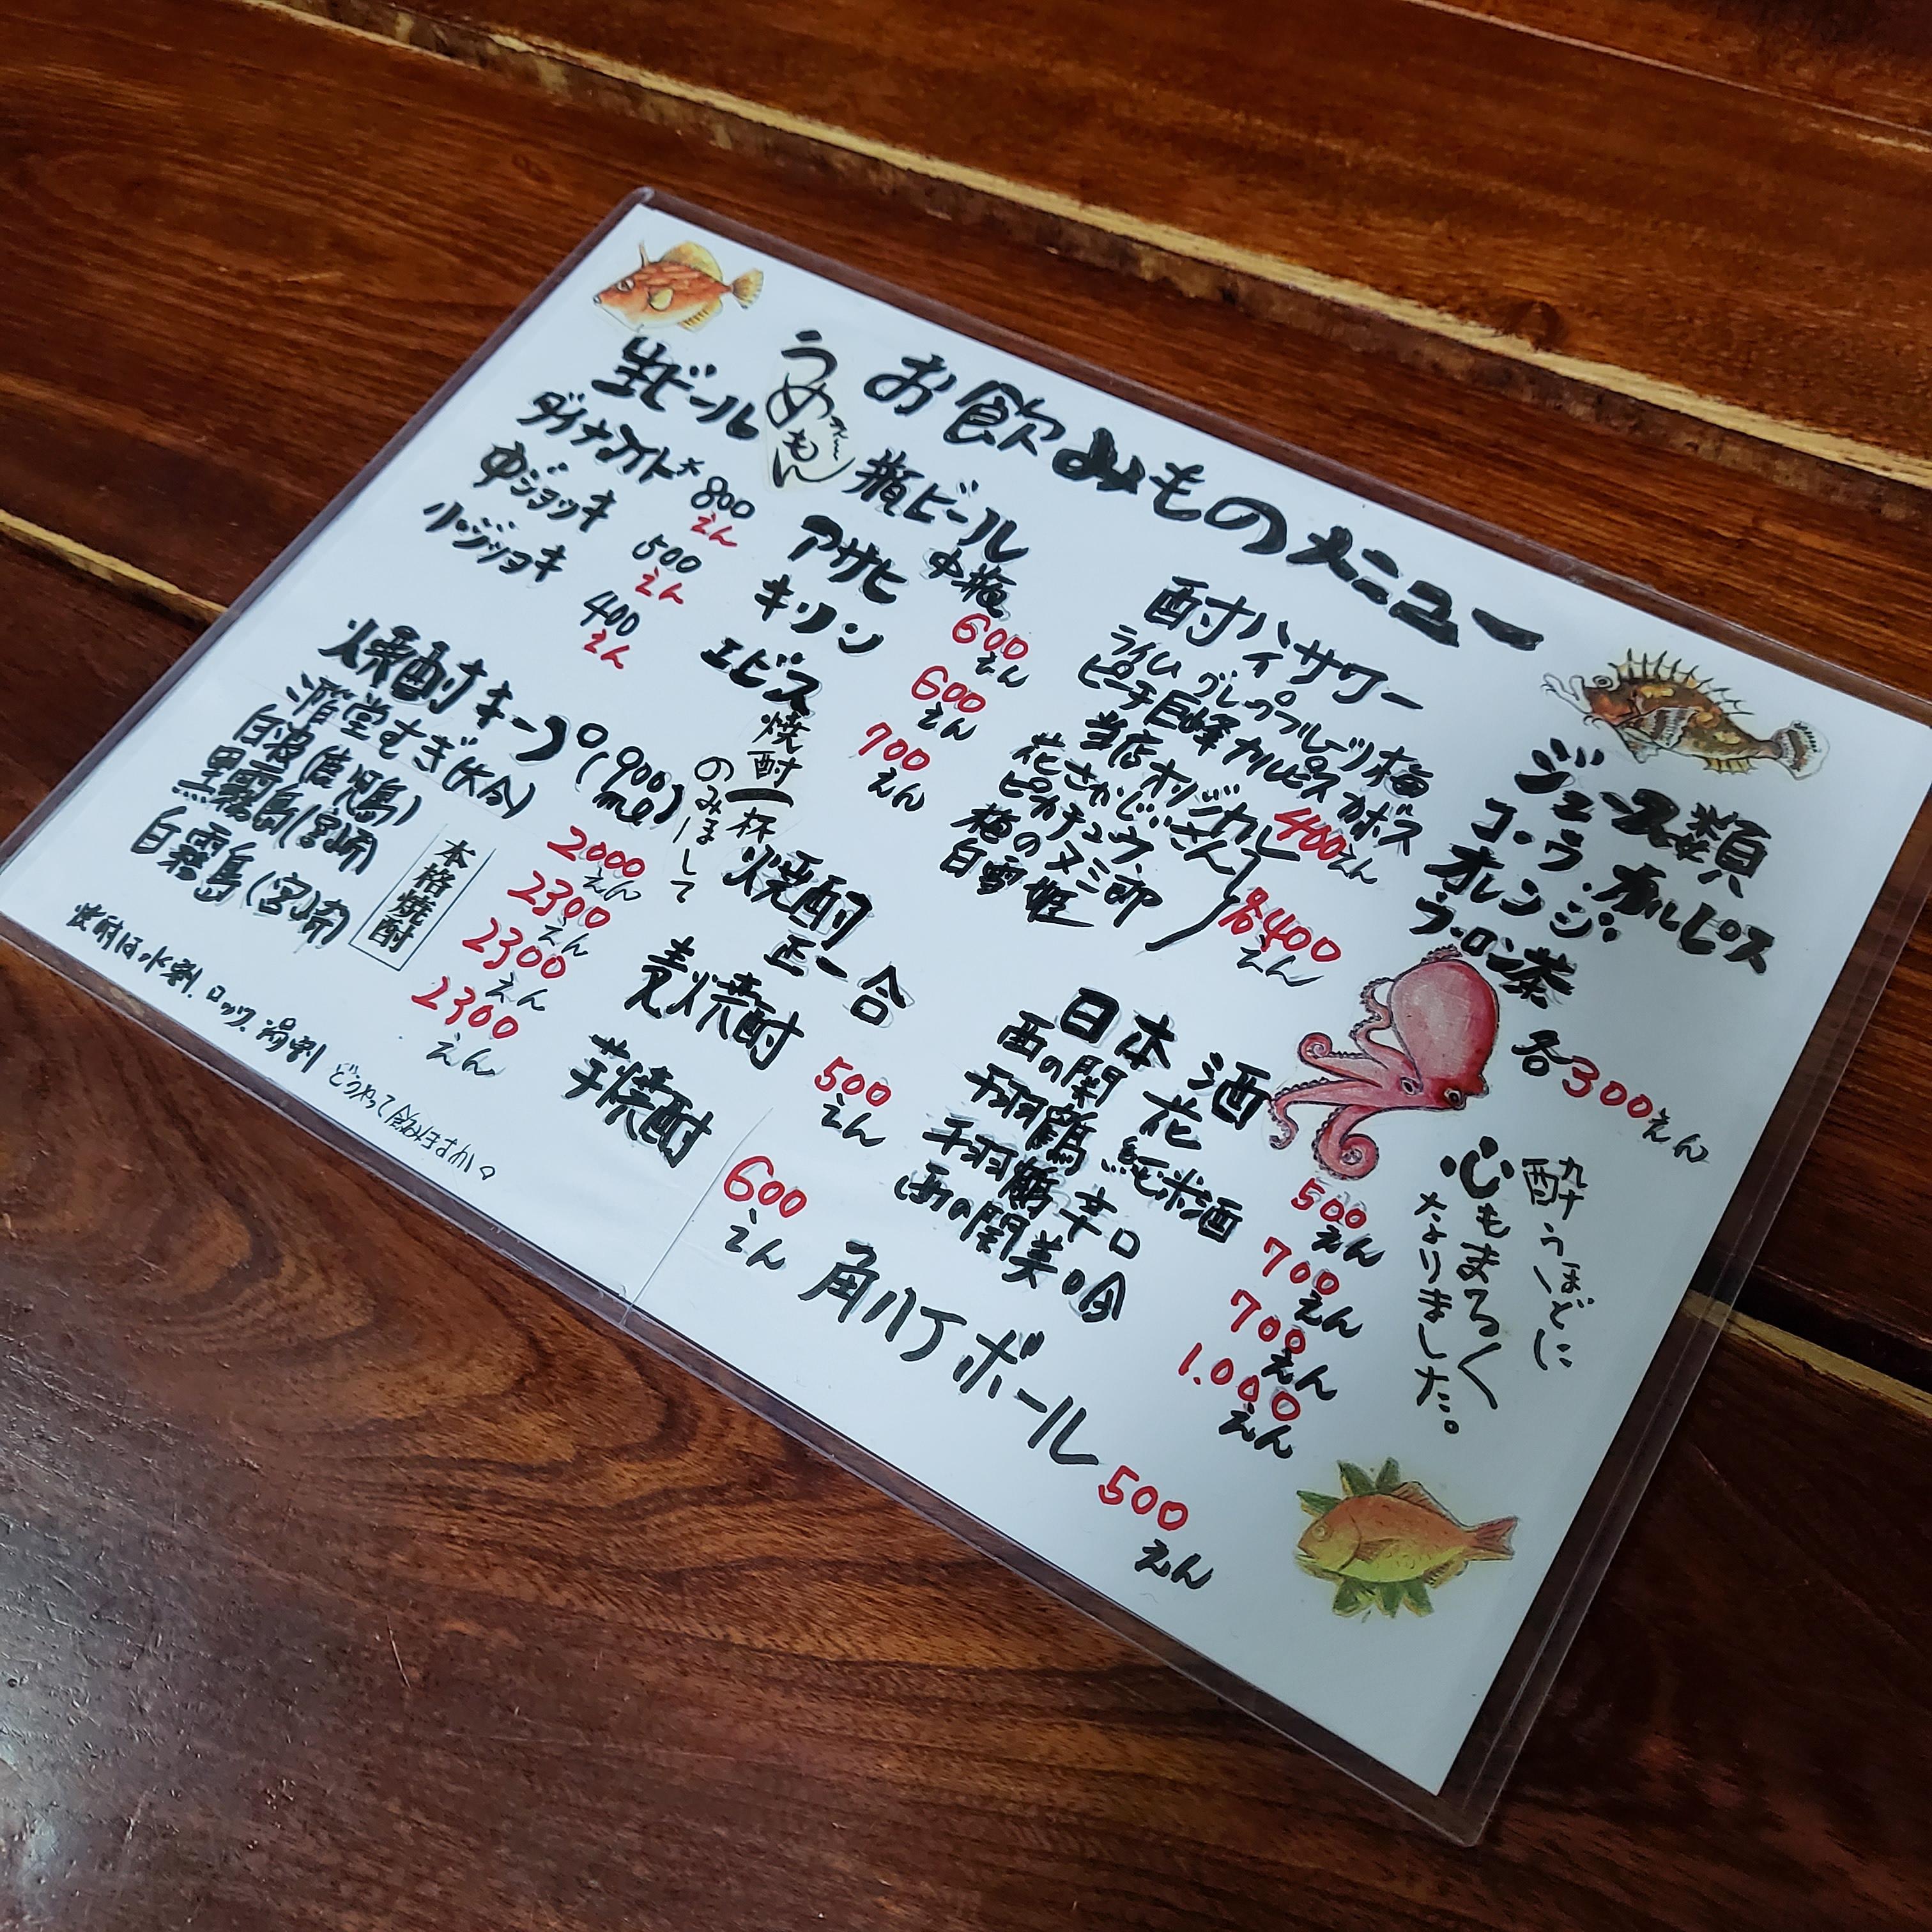 お飲みものメニュー
うめぇ〜もん
生ビール
ダイナマイト大 800えん
中ジョッキ 500えん
小ジョッキ 400えん
瓶ビール
中瓶
アサヒ 600えん
キリン 600えん
エビス 700えん
酎ハイサワー
ライム グレープフルーツ 梅
ピーチ 巨峰 カルピス カボス
400えん
当店オリジナル
花さかじいさん
ピカチュウ
梅の又三郎
白雪姫
各400えん
ジュース類
コーラ・カルピス
オレンジ・
ウーロン茶
各300えん
焼酎キープ(900ml)
二階堂むぎ(大分) 2000えん
白波(鹿児島) 2300えん
黒霧島(宮崎) 2300えん
白霧島(宮崎) 2300えん
本格焼酎
焼酎は水割、ロック、湯割 どうやって飲みますか。
焼酎一杯
のみほして
焼酎
正一合
麦焼酎 500えん
芋焼酎 600えん
日本酒
西の関 花 500えん
千羽鶴 純米酒 700えん
千羽鶴 辛口 700えん
西の関 美吟 1.000えん
角ハイボール 500えん
酔うほどに
心もまるく
なりました。